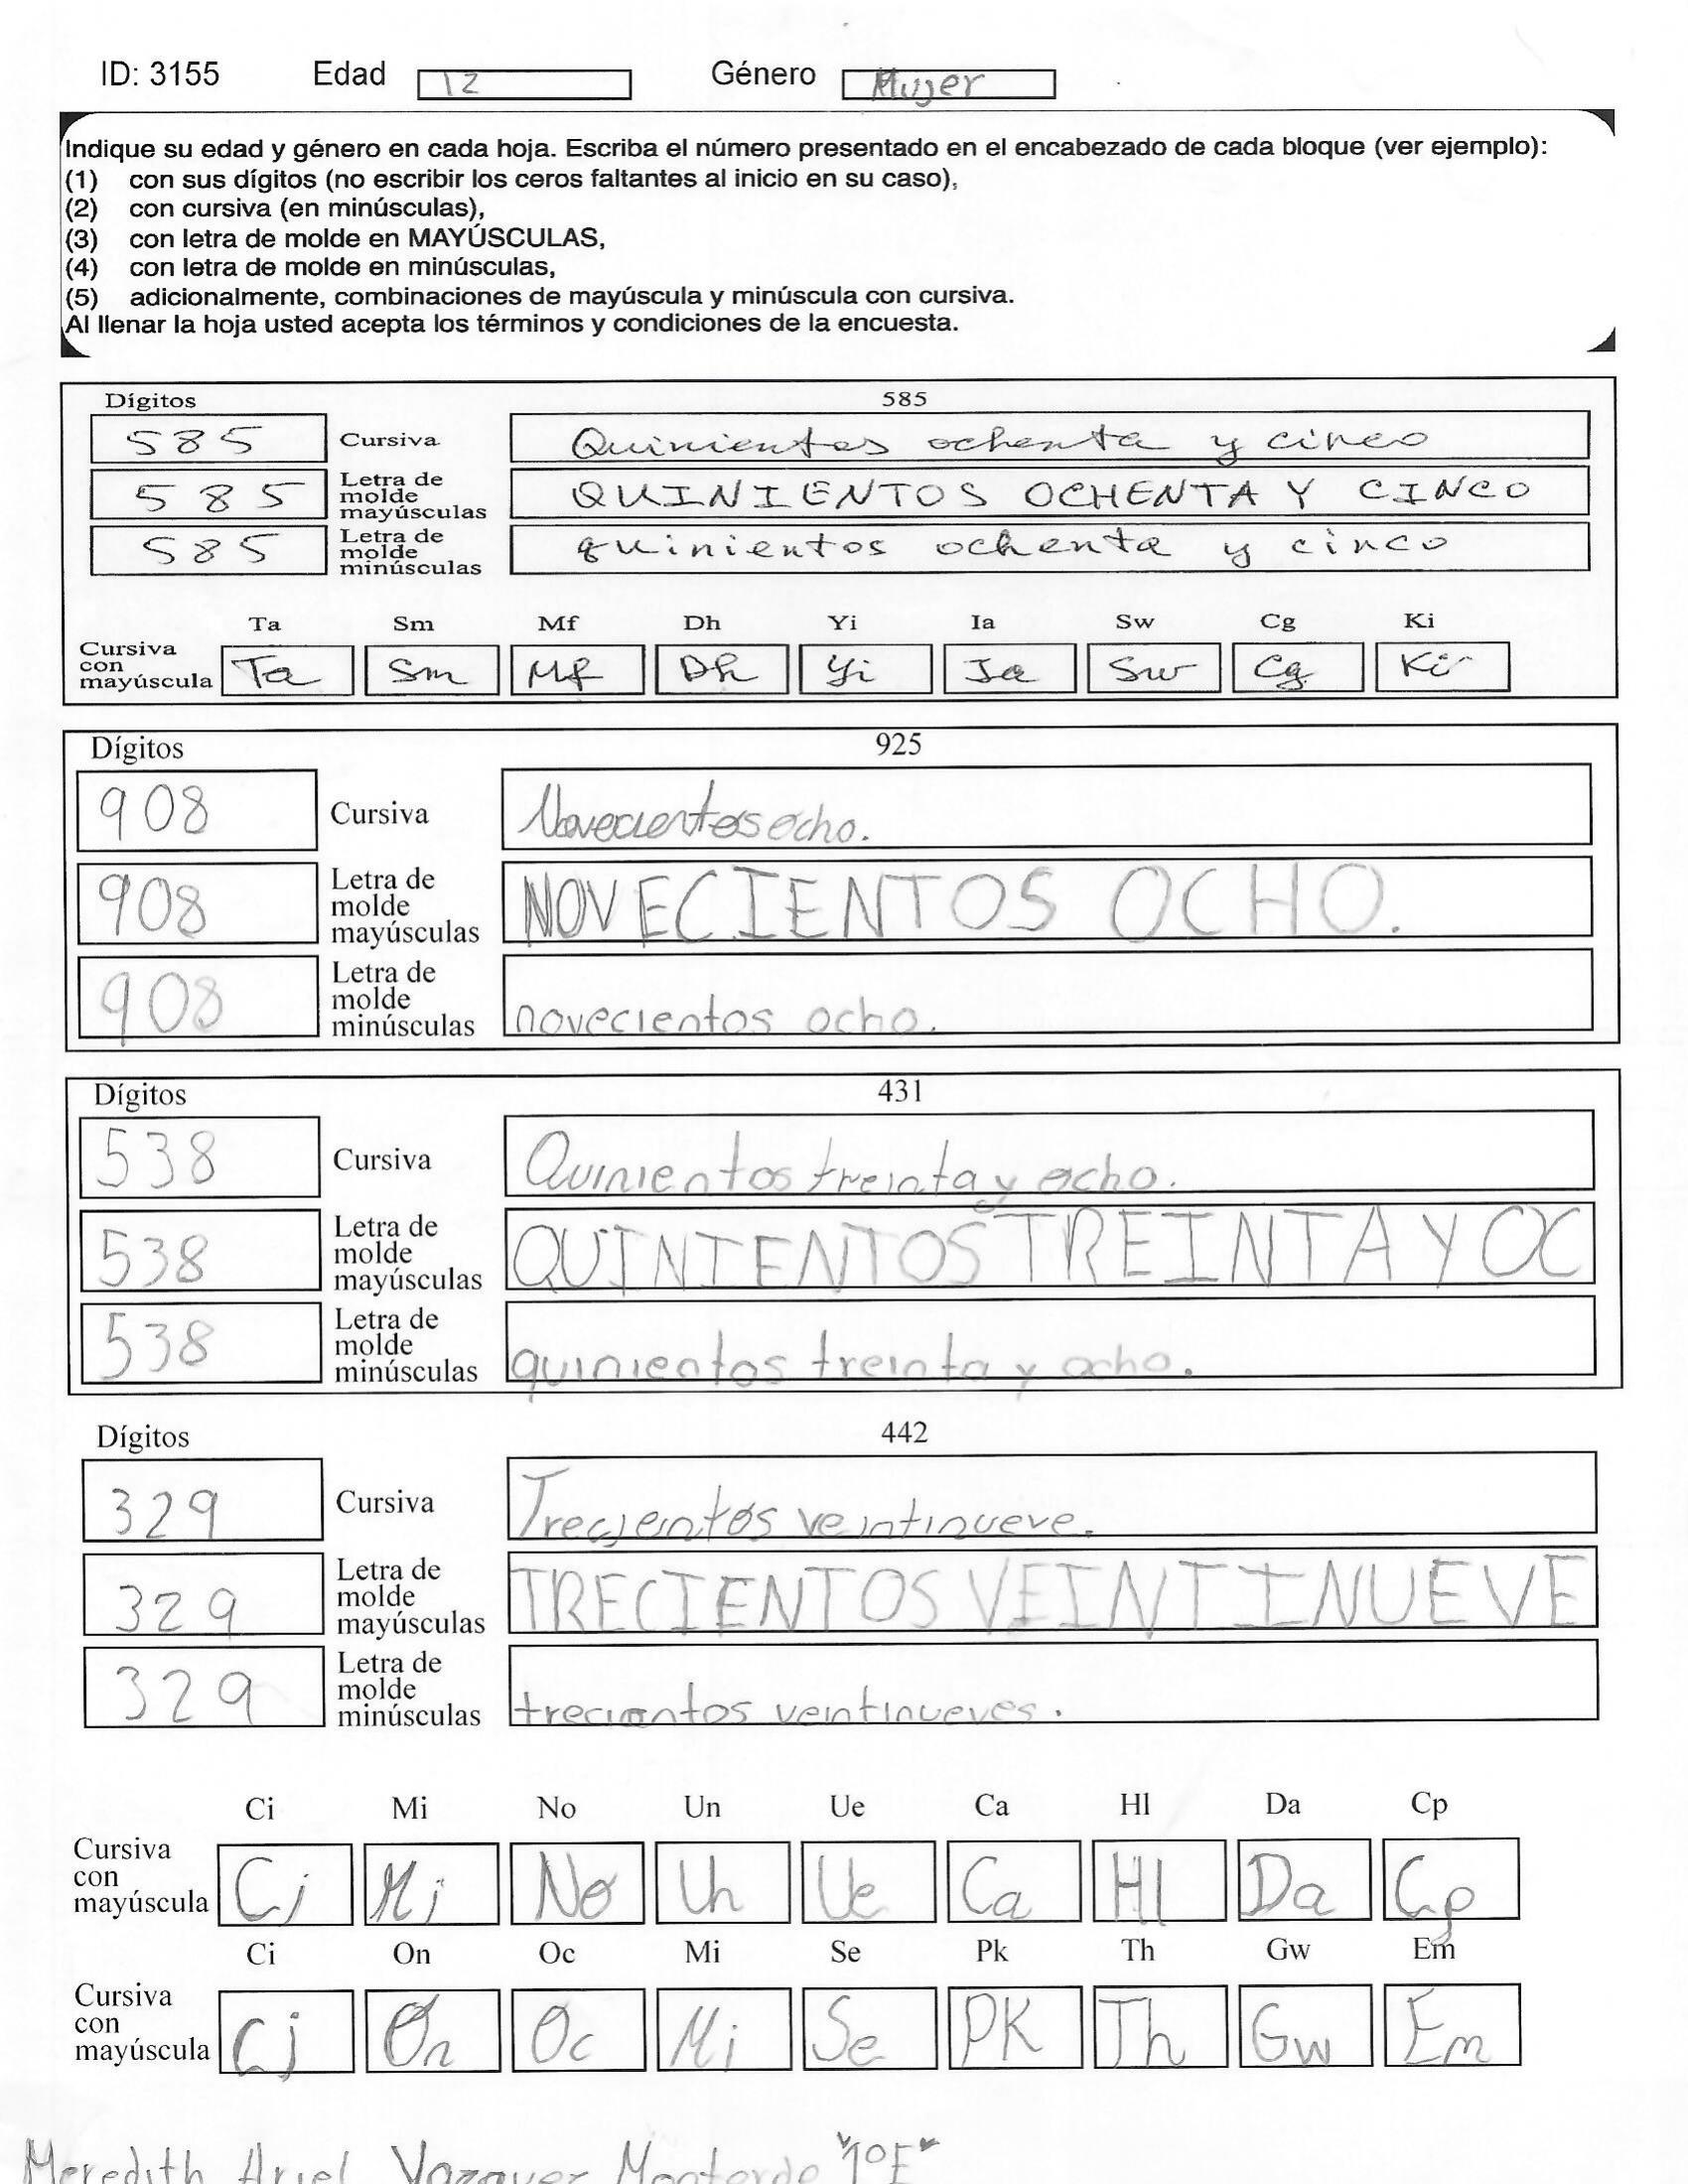 ID: 3155 Edad 12 Género Mujer
Indique su edad y género en cada hoja. Escriba el número presentado en el encabezado de cada bloque (ver ejemplo):
(1) con sus dígitos (no escribir los ceros faltantes al inicio en su caso),
(2) con cursiva (en minúsculas),
(3) con letra de molde en MAYÚSCULAS,
(4) con letra de molde en minúsculas,
(5) adicionalmente, combinaciones de mayúscula y minúscula con cursiva.
Al llenar la hoja usted acepta los términos y condiciones de la encuesta.
Dígitos 585
585 Cursiva Quinientos ochenta y cinco
585 Letra de molde mayúsculas QUINIENTOS OCHENTA Y CINCO
585 Letra de molde minúsculas quinientos ochenta y cinco
Ta Sm Mf Dh Yi Ia Sw Cg Ki
Cursiva con mayúscula Ta Sm Mf Dh Yi Ia Sw Cg Ki
Dígitos 925
908 Cursiva Novecientos ocho.
908 Letra de molde mayúsculas NOVECIENTOS OCHO.
908 Letra de molde minúsculas novecientos ocho.
Dígitos 431
538 Cursiva Quinientos treinta y ocho.
538 Letra de molde mayúsculas QUINIENTOS TREINTA Y OC
538 Letra de molde minúsculas quinientos treinta y ocho.
Dígitos 442
329 Cursiva Trecientos veintinueve.
329 Letra de molde mayúsculas TRECIENTOS VEINTINUEVE
329 Letra de molde minúsculas trecientos veintinueves.
Ci Mi No Un Ue Ca Hl Da Cp
Cursiva con mayúscula Ci Mi No Un Ue Ca Hl Da Cp
Ci On Oc Mi Se Pk Th Gw Em
Cursiva con mayúscula Ci On Oc Mi Se PK Th Gw Em
Meredith Ariel Vazquez Monterde "1°E"